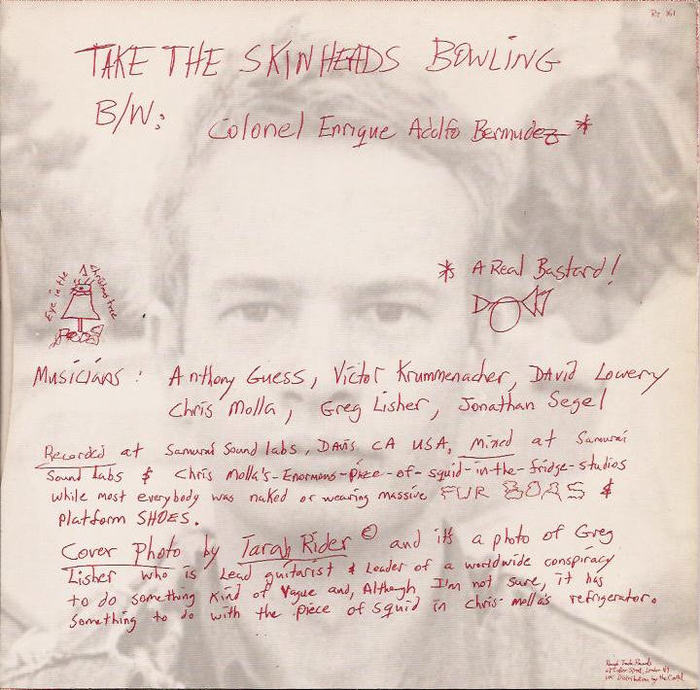 RT 161
TAKE THE SKINHEADS BOWLING
B/W:
Colonel Enrique Adolfo Bermudez *
* A Real Bastard!
Eye in the Christmas tree
Musicians: Anthony Guess, Victor Krummenacher, David Lowery
Chris Molla, Greg Lisher, Jonathan Segel
Recorded at Samurai Sound labs, DAVIS CA USA, Mixed at Samurai
Sound Labs & Chris Molla's-Enormous-piece-of-squid-in-the-fridge-studios
while most everybody was naked or wearing massive FUR BOAS &
platform SHOES.
Cover Photo by Tarah Rider © and it's a photo of Greg
Lisher who is Lead guitarist & Leader of a worldwide conspiracy
to do something kind of vague and, Although I'm not sure, it has
something to do with the piece of squid in chris molla's refrigerator.
Rough Trade Records
Street, London N1
UK Distribution by the Cartel